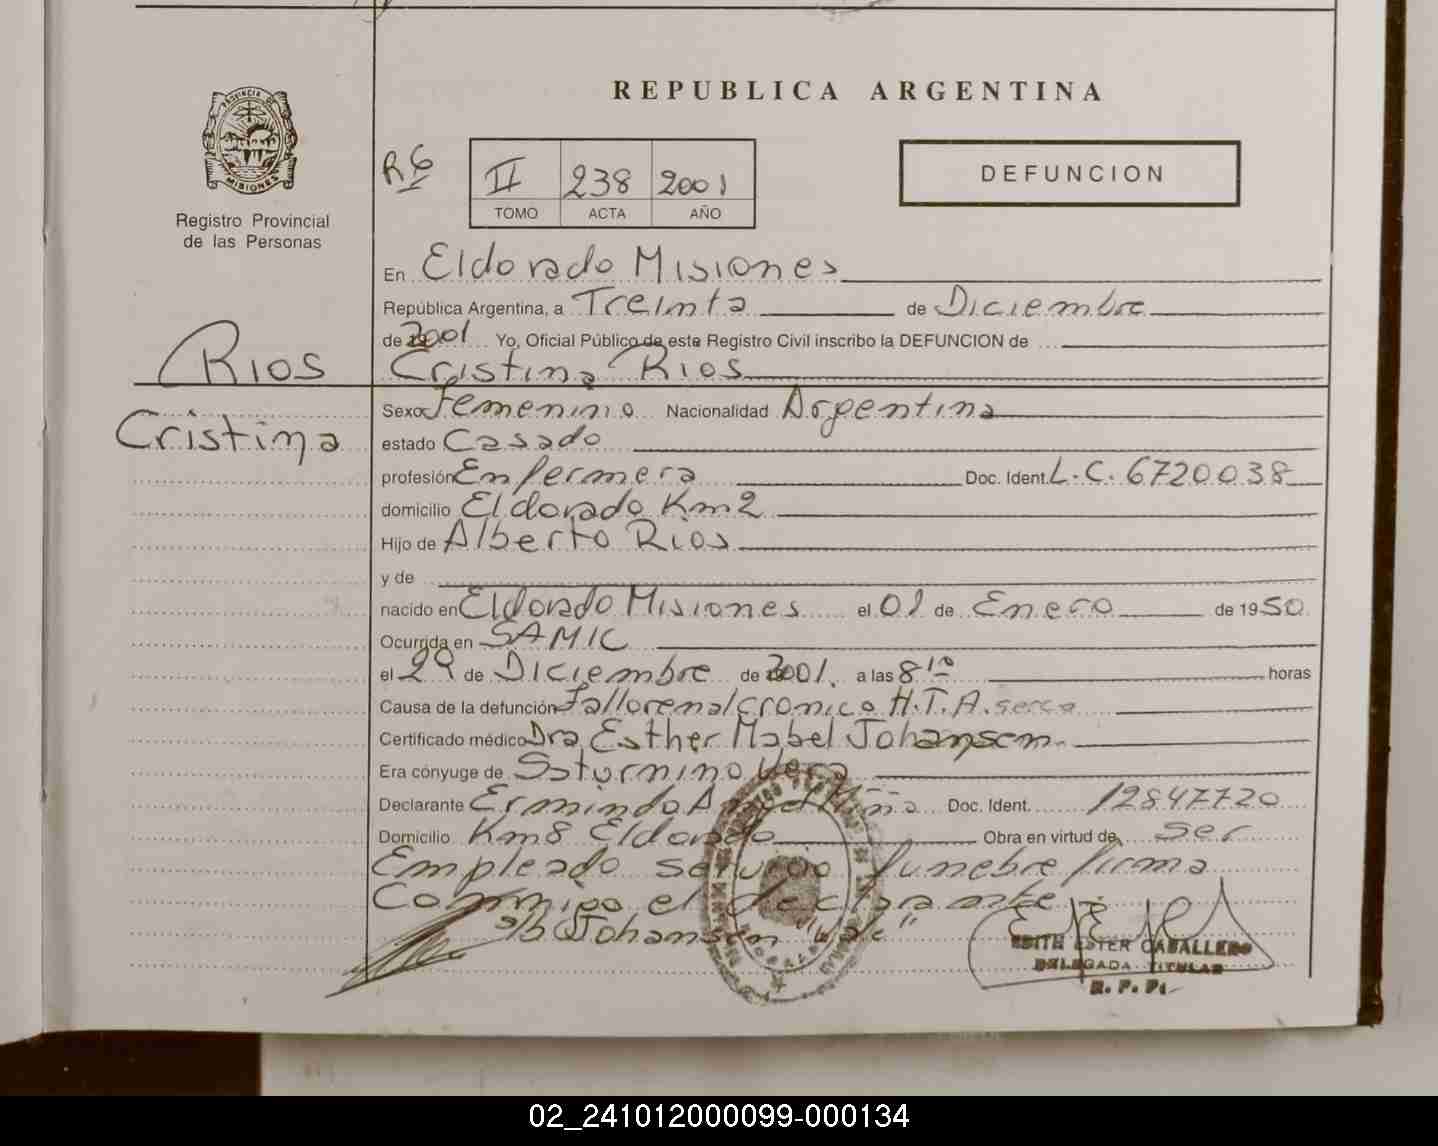 REPUBLICA ARGENTINA
PROVINCIA DE
MISIONES
Registro Provincial
de las Personas
R6
II 238 2001
TOMO ACTA AÑO
DEFUNCION
En Eldorado Misiones
República Argentina, a Treinta de Diciembre
de 2001 Yo, Oficial Público de este Registro Civil inscribo la DEFUNCION de
Rios Cristina Rios
Cristina
Sexo Femenino Nacionalidad Argentina
estado Casado
profesión Enfermera Doc. Ident. L.C. 6720038
domicilio Eldorado Km2
Hijo de Alberto Rios
y de
nacido en Eldorado Misiones el 01 de Enero de 1950
Ocurrida en SAMIC
el 29 de Diciembre de 2001. a las 8 10 horas
Causa de la defunción Fallo renal cronico H.T.A. serca
Certificado médico Dra Esther Mabel Johansen.
Era cónyuge de Saturnino Vera
Declarante Ermindo Doc. Ident. 12847720
Domicilio Km8 Eldorado Obra en virtud de ser
Empleado servicio funebre firma
Conmigo el declarante
s/b Johansen "vale"
EDITH ESTER CABALLERO
DELEGADA TITULAR
R. P. P.
02_241012000099-000134